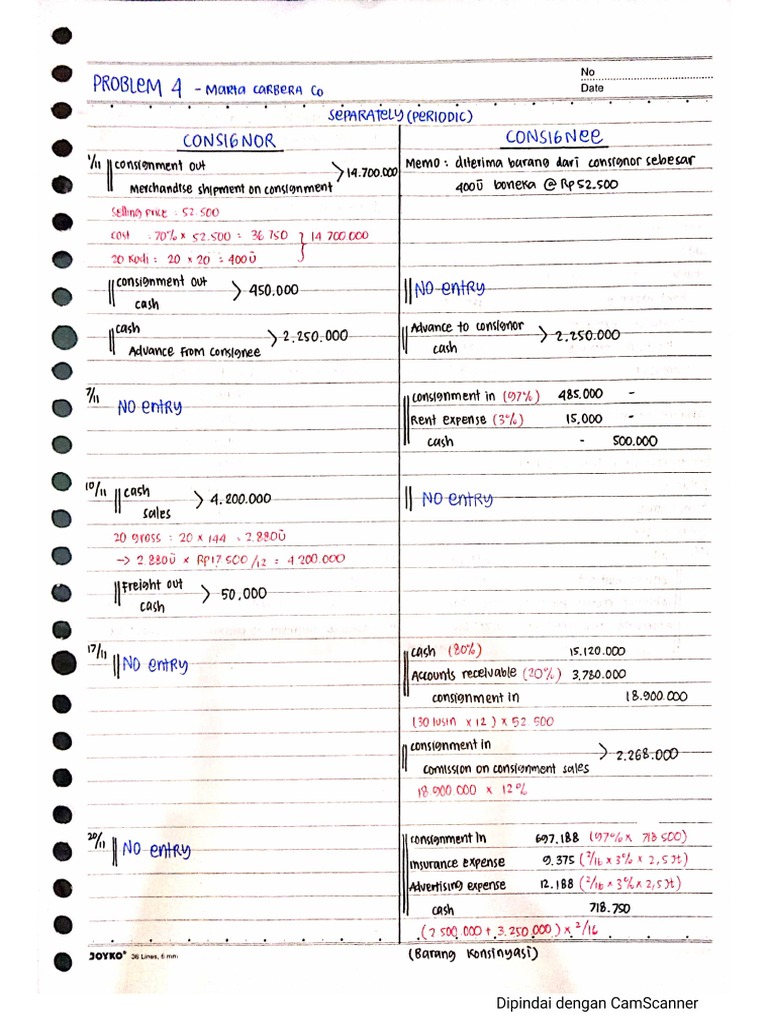 No
Date
PROBLEM 4 - MARIA CARBERA Co
SEPARATELY (PERIODIC)
CONSIGNOR
CONSIGNEE
1/11 consignment out
Merchandise shipment on consignment > 14.700.000
Memo : diterima barang dari consignor sebesar
400ū boneka @ Rp 52.500
Selling price : 52.500
cost : 70% x 52.500 = 36 750
20 Kodi : 20 x 20 = 400ū } 14 700.000
consignment out
cash > 450.000
NO entry
cash
Advance from consignee > 2.250.000
Advance to consignor
cash > 2.250.000
7/11 NO entry
consignment in (97%) 485.000 -
Rent expense (3%) 15,000 -
cash - 500.000
10/11 cash
sales > 4.200.000
NO entry
20 gross : 20 x 144 = 2.880ū
-> 2 880ū x Rp 17 500 /12 = 4 200.000
Freight out
cash > 50,000
17/11 NO entry
cash (80%) 15.120.000
Accounts receivable (20%) 3.780.000
consignment in 18.900.000
(30 lusin x 12) x 52 500
consignment in
comission on consignment sales > 2.268.000
18 900.000 x 12%
20/11 NO entry
consignment in 697.188 (97% x 718 500)
Insurance expense 9.375 (2/16 x 3% x 2,5 jt)
Advertising expense 12.188 (2/16 x 3% x 2,5 jt)
cash 718.750
(2 500.000 + 3.250.000) x 2/16
(Barang Konsinyasi)
JOYKO® 36 Lines, 6 mm
Dipindai dengan CamScanner